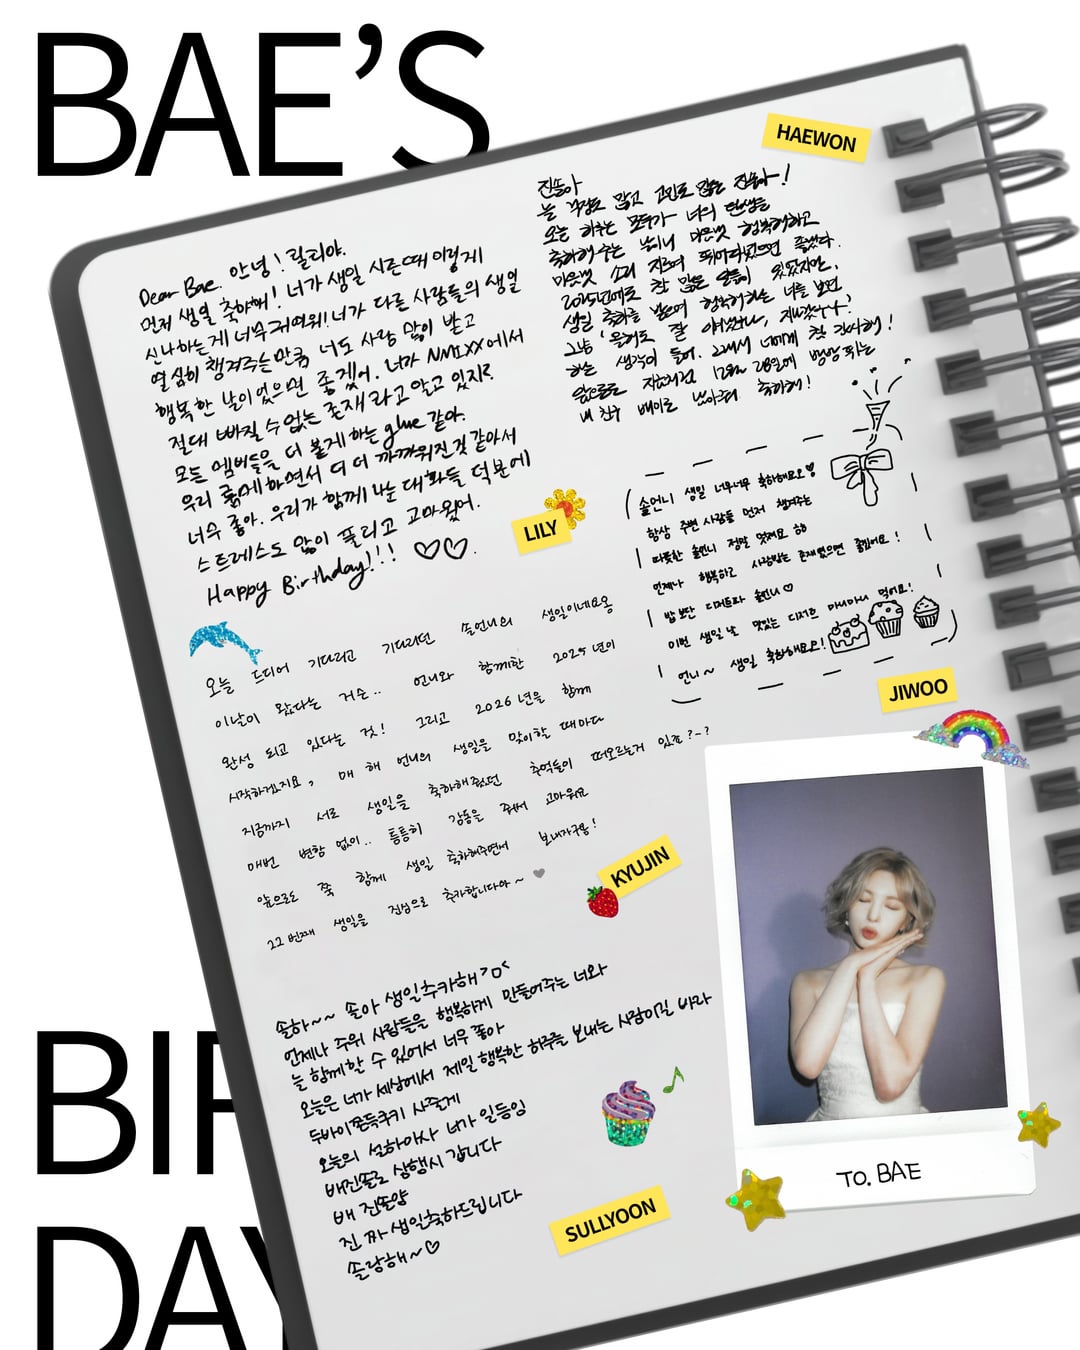 BAE'S
BIR
DAY
HAEWON
진솔아
늘 걱정도 많고 고민도 많은 진솔아!
오늘 하루는 모두가 너의 탄생을
축하해주는 날이니 마음껏 행복해하고
마음껏 소리 지르며 뛰어다녔으면 좋겠다.
2025년에도 참 많은 일들이 있었지만,
생일 축하를 받으며 행복해하는 너를 보면
그냥 '올해도 잘
하는 생각이 들어. 22에서 너에게 첫
앞으로도 지금처럼 12월 28일에 방방 뛰는
내 친구 배이로 축하해!
Dear Bae. 안녕! 릴리야.
먼저 생일 축하해! 너가 생일 시즌 때 이렇게
신나하는 게 너무 귀여워! 너가 다른 사람들의 생일
열심히 챙겨주는 만큼 너도 사랑 많이 받고
행복한 날이었으면 좋겠어. 너가 NMIXX에서
절대 빠질 수 없는 존재라고 알고 있지?
모든 멤버들을 더 붙게 하는 glue 같아.
우리 룸메 하면서 더 더 가까워진 것 같아서
너무 좋아. 우리가 함께 나눈 대화들 덕분에
스트레스도 많이 풀리고 고마웠어.
Happy Birthday!!! ♡♡.
LILY
솔언니 생일 너무너무 축하해요오♡
항상 주변 사람들 먼저 챙겨주는
따뜻한 솔언니 정말 멋져요 히히
언제나 행복하고 사랑받는 존재였으면 좋겠어요!
밥보단 디저트파 솔언니♡
이번 생일날 맛있는 디저트 마니마니 먹어요!
언니~ 생일 축하해요오!
JIWOO
오늘 드디어 기다리고 기다리던 솔언니의 생일이네요옹
이날이 왔다는 거슨.. 언니와 함께한 2025년이
완성 되고 있다는 것! 그리고 2026년을 함께
시작하겠지요, 매 해 언니의 생일을 맞이할 때마다
지금까지 서로 생일을 축하해줬던 추억들이 떠오르는거 있죠?~?
매번 변함 없이.. 통통히 감동을 줘서 고마워요
앞으로도 쭉 함께 생일 축하해주면서 보내자구용!
22번째 생일을 진심으로 추카합니다아~ ♥
KYUJIN
솔하~~ 솔아 생일추카해>ㅁ<
언제나 주위 사람들을 행복하게 만들어주는 너와
늘 함께할 수 있어서 너무 좋아
오늘은 너가 세상에서 제일 행복한 하루를 보내는 사람이길 바라
두바이쫀득쿠키 사줄게
오늘의 설하이사 너가 일등임
배진솔로 삼행시 갑니다
배 진솔양
진 짜 생일축하드립니다
솔랑해~♡
SULLYOON
TO. BAE